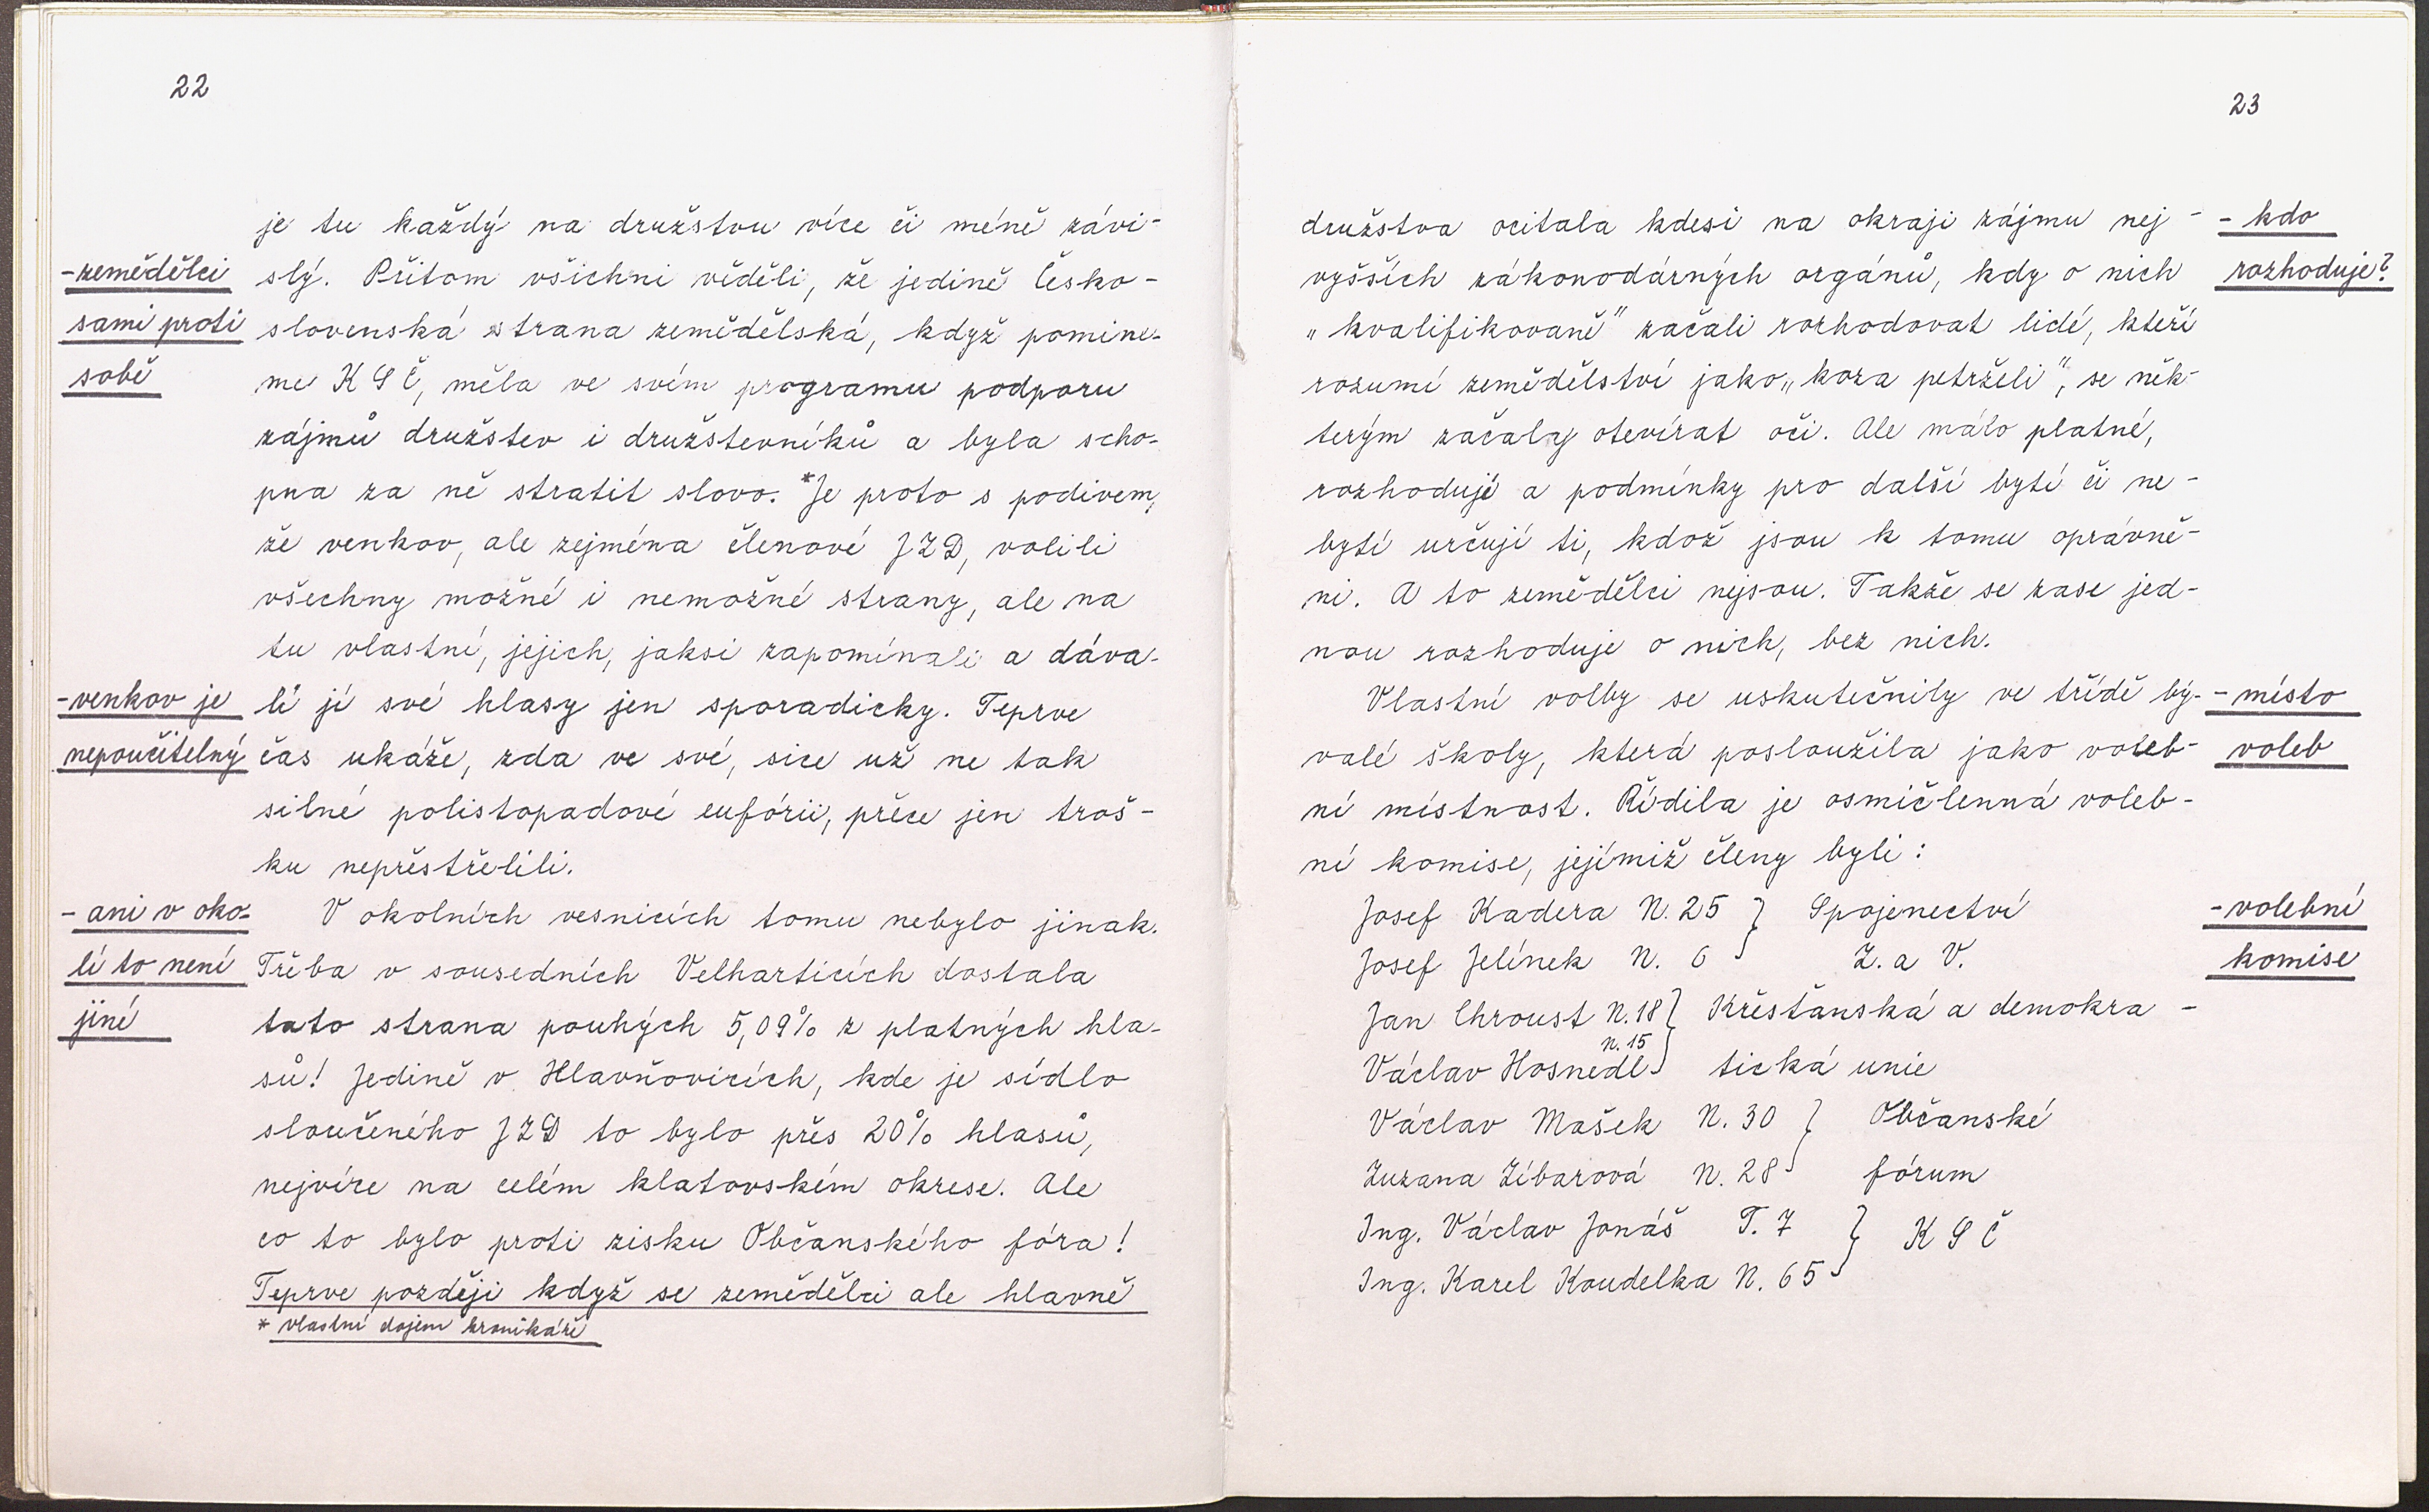 22
je tu každý na družstvu více či méně závi-
-zemědělci
slý. Přitom všichni věděli, že jedině Česko-
sami proti
slovenská strana zemědělská, když pomine-
sobě
me KSČ, měla ve svém programu podporu
zájmů družstev i družstevníků a byla scho-
pna za ně stratit slovo. *Je proto s podivem,
že venkov, ale zejména členové JZD, volili
všechny možné i nemožné strany, ale na
tu vlastní, jejich, jaksi zapomínali a dáva-
-venkov je
li jí své hlasy jen sporadicky. Teprve
nepoučitelný
čas ukáže, zda ve své, sice už ne tak
silné polistopadové eufórii, přece jen troš-
ku nepřestřelili.
- ani v oko-
V okolních vesnicích tomu nebylo jinak.
lí to není
Třeba v sousedních Velharticích dostala
jiné
tato strana pouhých 5,09% z platných hla-
sů! Jedině v Hlavňovicích, kde je sídlo
sloučeného JZD to bylo přes 20% hlasů,
nejvíce na celém klatovském okrese. Ale
co to bylo proti zisku Občanského fóra!
Teprve později když se zemědělci ale hlavně
* vlastní dojem kronikáře
23
družstva ocitala kdesi na okraji zájmu nej-
- kdo
vyšších zákonodárných orgánů, kdy o nich
rozhoduje?
„kvalifikovaně" začali rozhodovat lidé, kteří
rozumí zemědělství jako „koza petrželi", se něk-
terým začaly otevírat oči. Ale málo platné,
rozhodují a podmínky pro další bytí či ne-
bytí určují ti, kdož jsou k tomu oprávně-
ni. A to zemědělci nejsou. Takže se zase jed-
nou rozhoduje o nich, bez nich.
Vlastní volby se uskutečnily ve třídě bý-
- místo
valé školy, která posloužila jako voleb-
voleb
ní místnost. Řídila je osmičlenná voleb-
ní komise, jejímiž členy byli:
Josef Kadera N. 25 } Spojenectví
-volební
Josef Jelínek N. 6 Z. a V.
komise
Jan Chroust N. 18 } Křesťanská a demokra-
N. 15
Václav Hosnedl tická unie
Václav Mašek N. 30 } Občanské
Zuzana Zíbarová N. 28 fórum
Ing. Václav Jonáš T. 7 } KSČ
Ing. Karel Koudelka N. 65